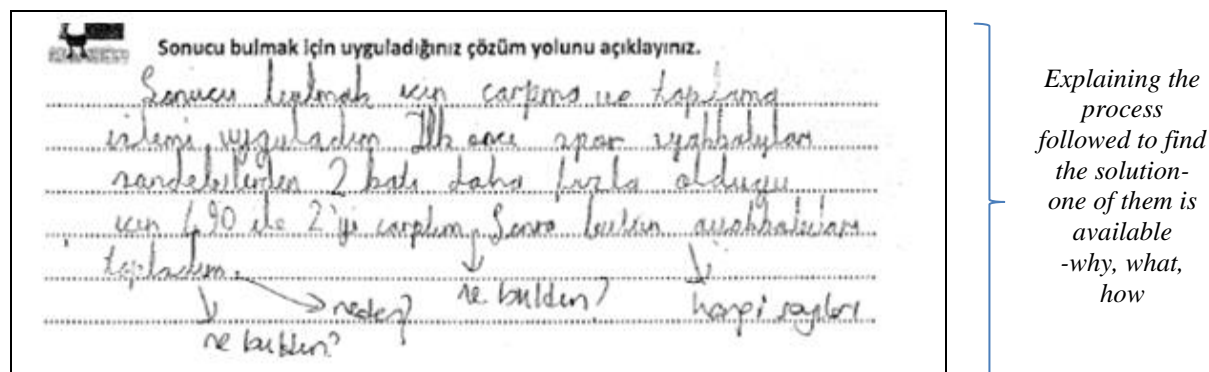 Sonucu bulmak için uyguladığınız çözüm yolunu açıklayınız.
Sonucu bulmak için carpma ve toplama
işlemi uyguladım İlk önce spor ayakkabıları
sandeletlerden 2 katı daha fazla olduğu
için 490 ile 2'yi carptım. Sonra bütün ayakkabıları
topladım.
neden?
ne buldun?
hangi sayıları
ne buldun?
Explaining the
process
followed to find
the solution-
one of them is
available
-why, what,
how